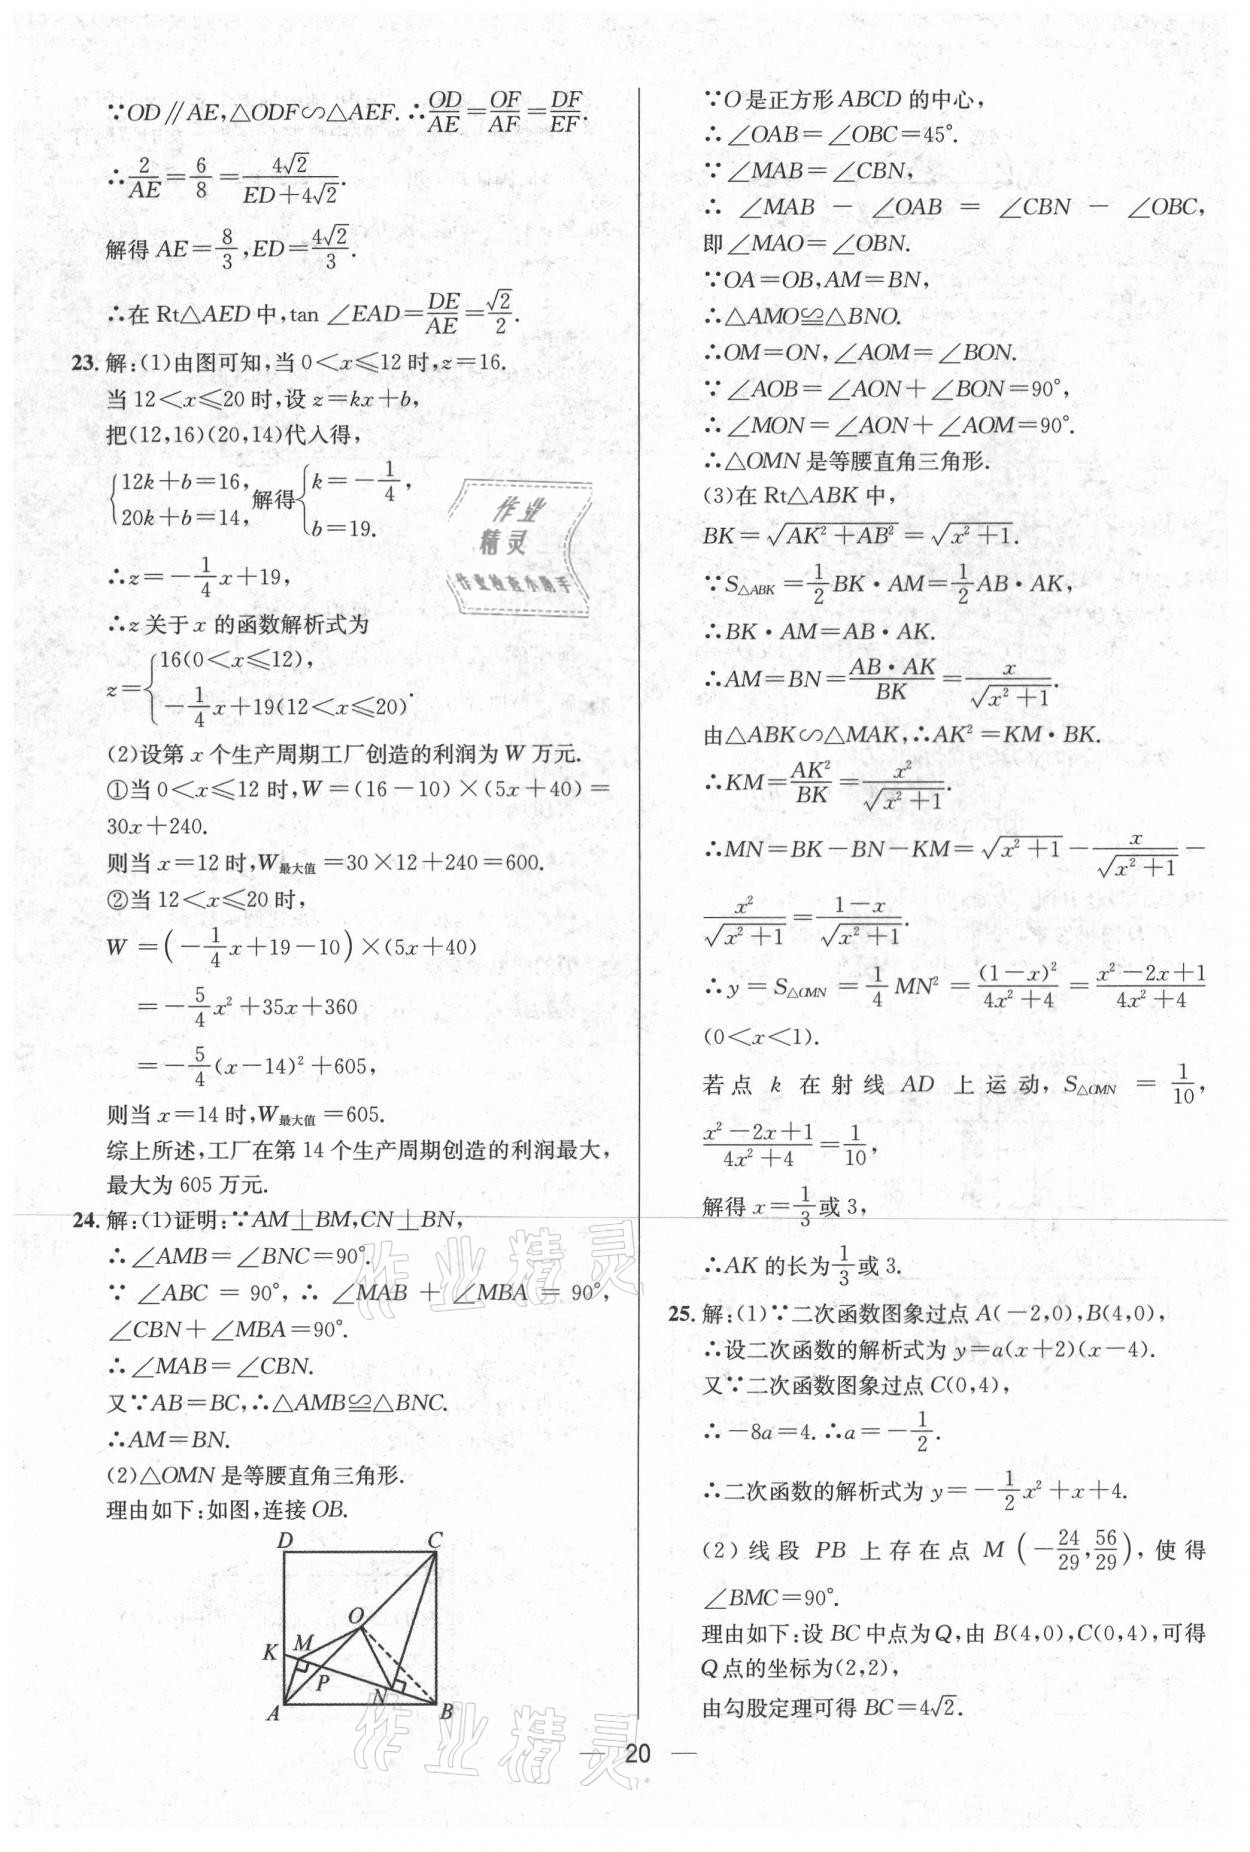 ∵OD∥AE,△ODF∽△AEF.∴OD/AE=OF/AF=DF/EF.
∴2/AE=6/8=4√2/(ED+4√2).
解得 AE=8/3,ED=4√2/3.
∴在 Rt△AED 中,tan ∠EAD=DE/AE=√2/2.
23. 解:(1)由图可知,当 0<x≤12 时,z=16.
当 12<x≤20 时,设 z=kx+b,
把(12,16)(20,14)代入得,
{12k+b=16, 20k+b=14, 解得{k=-1/4, b=19.
∴z=-1/4x+19,
∴z 关于 x 的函数解析式为
z={16(0<x≤12), -1/4x+19(12<x≤20).
(2)设第 x 个生产周期工厂创造的利润为 W 万元.
①当 0<x≤12 时,W=(16-10)×(5x+40)=
30x+240.
则当 x=12 时,W最大值=30×12+240=600.
②当 12<x≤20 时,
W=(-1/4x+19-10)×(5x+40)
=-5/4x²+35x+360
=-5/4(x-14)²+605,
则当 x=14 时,W最大值=605.
综上所述,工厂在第 14 个生产周期创造的利润最大,
最大为 605 万元.
24. 解:(1)证明:∵AM⊥BM,CN⊥BN,
∴∠AMB=∠BNC=90°.
∵∠ABC=90°,∴∠MAB+∠MBA=90°,
∠CBN+∠MBA=90°.
∴∠MAB=∠CBN.
又∵AB=BC,∴△AMB≌△BNC.
∴AM=BN.
(2)△OMN 是等腰直角三角形.
理由如下:如图,连接 OB.
D C
O
K M
P N
A B
∵O 是正方形 ABCD 的中心,
∴∠OAB=∠OBC=45°.
∵∠MAB=∠CBN,
∴∠MAB-∠OAB=∠CBN-∠OBC,
即∠MAO=∠OBN.
∵OA=OB,AM=BN,
∴△AMO≌△BNO.
∴OM=ON,∠AOM=∠BON.
∵∠AOB=∠AON+∠BON=90°,
∴∠MON=∠AON+∠AOM=90°.
∴△OMN 是等腰直角三角形.
(3)在 Rt△ABK 中,
BK=√(AK²+AB²)=√(x²+1).
∵S△ABK=1/2BK·AM=1/2AB·AK,
∴BK·AM=AB·AK.
∴AM=BN=AB·AK/BK=x/√(x²+1).
由△ABK∽△MAK,∴AK²=KM·BK.
∴KM=AK²/BK=x²/√(x²+1).
∴MN=BK-BN-KM=√(x²+1)-x/√(x²+1)-
x²/√(x²+1)=(1-x)/√(x²+1).
∴y=S△OMN=1/4MN²=(1-x)²/(4x²+4)=(x²-2x+1)/(4x²+4)
(0<x<1).
若点 k 在射线 AD 上运动,S△OMN=1/10,
(x²-2x+1)/(4x²+4)=1/10,
解得 x=1/3或 3,
∴AK 的长为1/3或 3.
25. 解:(1)∵二次函数图象过点 A(-2,0),B(4,0),
∴设二次函数的解析式为 y=a(x+2)(x-4).
又∵二次函数图象过点 C(0,4),
∴-8a=4.∴a=-1/2.
∴二次函数的解析式为 y=-1/2x²+x+4.
(2)线段 PB 上存在点 M(-24/29,56/29),使得
∠BMC=90°.
理由如下:设 BC 中点为 Q,由 B(4,0),C(0,4),可得
Q 点的坐标为(2,2),
由勾股定理可得 BC=4√2.
— 20 —
作业
精灵
作业检查小助手
作业精灵
作业精灵